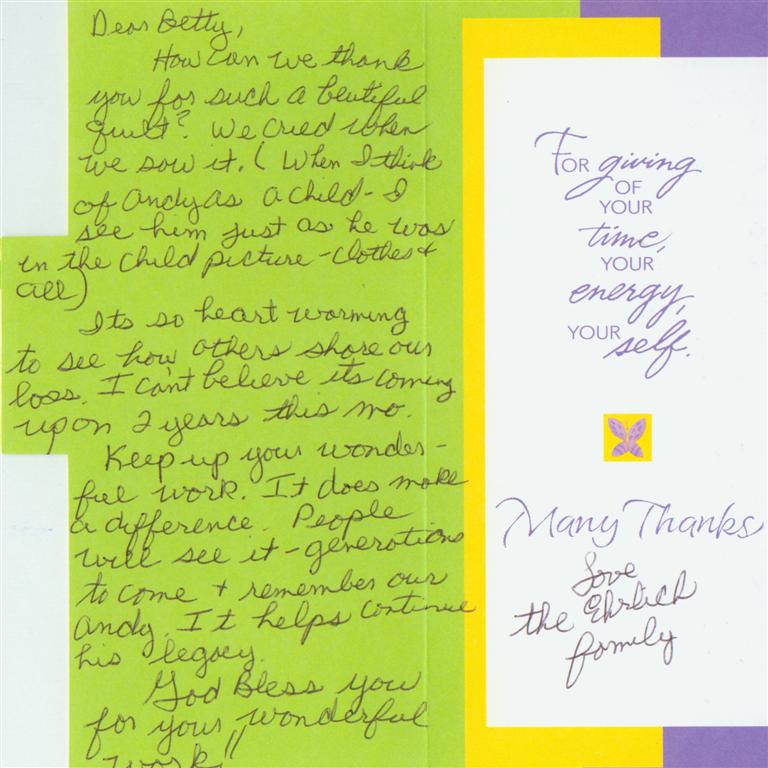 Dear Betty,
How can we thank
you for such a beutiful
quilt? We cried when
we saw it. ( When I think
of Andy as a child - I
see him just as he was
in the child picture - clothes +
all)
Its so heart warming
to see how others share our
loss. I can't believe its coming
upon 2 years this mo.
Keep up your wonder-
ful work. It does make
a difference. People
will see it - generations
to come + remember our
Andy. It helps continue
his legacy.
God Bless you
for your wonderful
work!!
FOR giving
OF
YOUR
time,
YOUR
energy,
YOUR self.
Many Thanks
Love
the Ehrlich
family